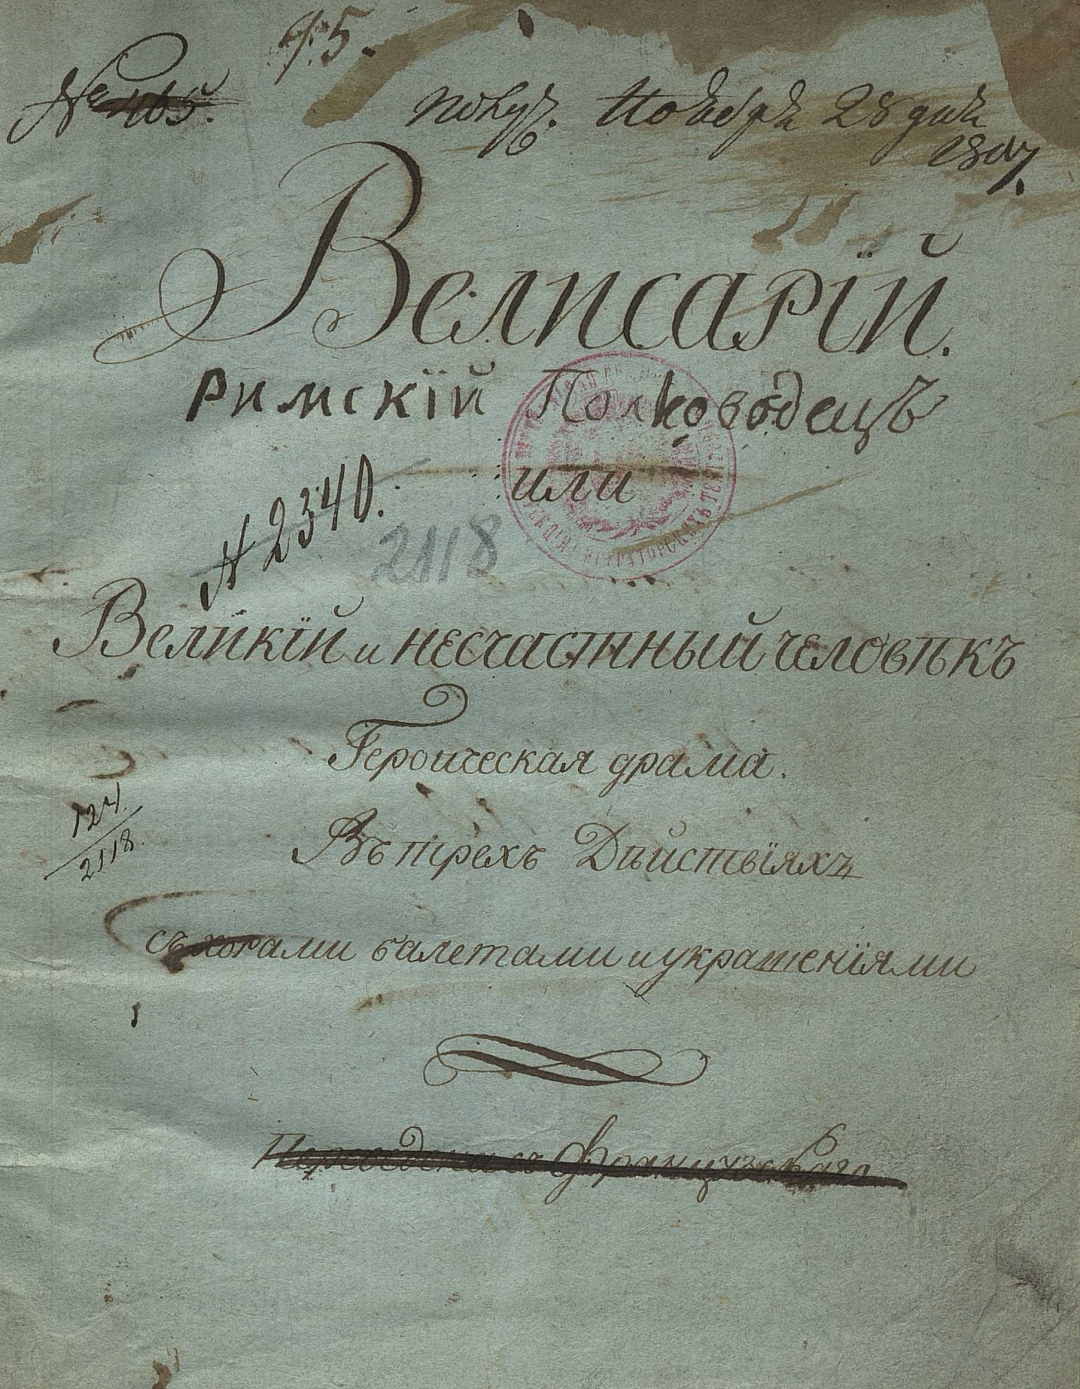 95.
№ 465.
получ. Ноября 28 дня
1807.
Велисарїй.
Римскїй Полководецъ
или
№ 2340.
2118
Великїй и несчастный человѣкъ
Героическая драма.
Въ трехъ Дѣйствїяхъ
124
2118.
съ хорами балетами и украшенїями
Переведена съ Французскаго